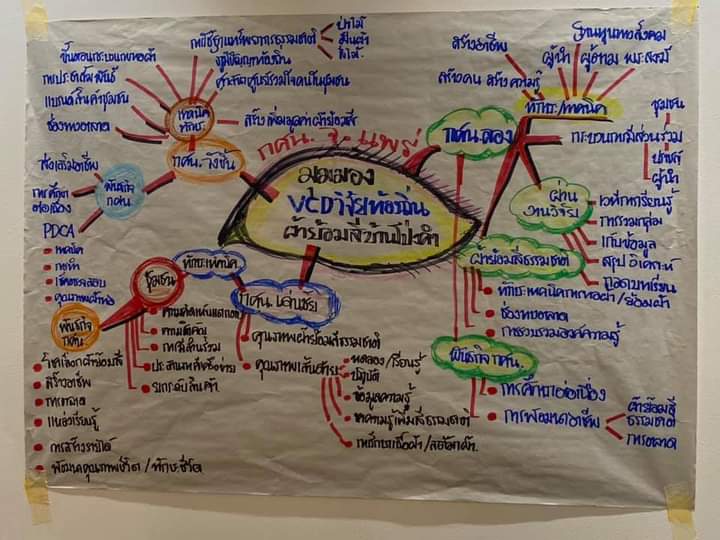 กศน. จ. แพร่
มุมมอง
VCD วิจัยท้องถิ่น
ผ้าย้อมสีบ้านโป่งคำ
กศน. วังชิ้น
เทคนิค
ทักษะ
ขั้นตอนกระบวนการทอผ้า
การประชาสัมพันธ์
แบรนด์สินค้าชุมชน
ช่องทางตลาด
การใช้ฐานทรัพยากรธรรมชาติ
ป่าไม้
ภูมิปัญญาท้องถิ่น
สร้างเพิ่มมูลค่าผ้าย้อมสี
พันธกิจ
กศน
ส่งเสริมอาชีพ
การศึกษา
ต่อเนื่อง
PDCA
เทคนิค
คุณภาพผ้าทอ
กศน. ลอง
ทักษะ/เทคนิค
สร้างอาชีพ
สร้างคน สร้างความรู้
ผู้นำ
ผู้ตาม
พระสงฆ์
ฐานทุนทางสังคม
ชุมชน
กระบวนการมีส่วนร่วม
ปราชญ์
ผู้นำ
ผ่าน
งานวิจัย
เวทีการเรียนรู้
การรวมกลุ่ม
เก็บข้อมูล
สรุป วิเคราะห์
ถอดบทเรียน
ผ้าย้อมสีธรรมชาติ
ทักษะเทคนิคการทอผ้า/ย้อมผ้า
ช่องทางตลาด
การรวบรวมองค์ความรู้
พันธกิจ กศน.
การศึกษาต่อเนื่อง
การพัฒนาอาชีพ
ผ้าย้อมสี
ธรรมชาติ
การตลาด
กศน. เด่นชัย
ทักษะ/เทคนิค
ชุมชน
การมีส่วนร่วม
ประสานเครือข่าย
ยกระดับสินค้า
พันธกิจ
กศน.
สร้างอาชีพ
การตลาด
แหล่งเรียนรู้
การสร้างรายได้
พัฒนาคุณภาพชีวิต/ทักษะชีวิต
คุณภาพผ้าย้อมสีธรรมชาติ
คุณภาพเส้นด้าย
ทดลอง/เรียนรู้
ปฏิบัติ
ข้อมูลความรู้
หาความรู้เพิ่มสีธรรมชาติ